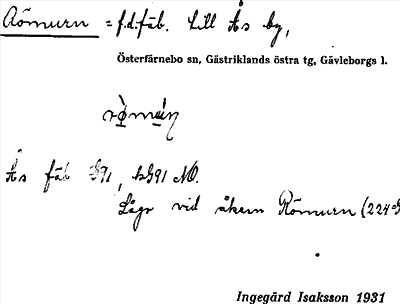 Römurn = f.d. fäb. till Ås by,
Österfärnebo sn, Gästriklands östra tg, Gävleborgs l.
Ås fäb
Låg vid åkern Römurn (224
Ingegärd Isaksson 1931